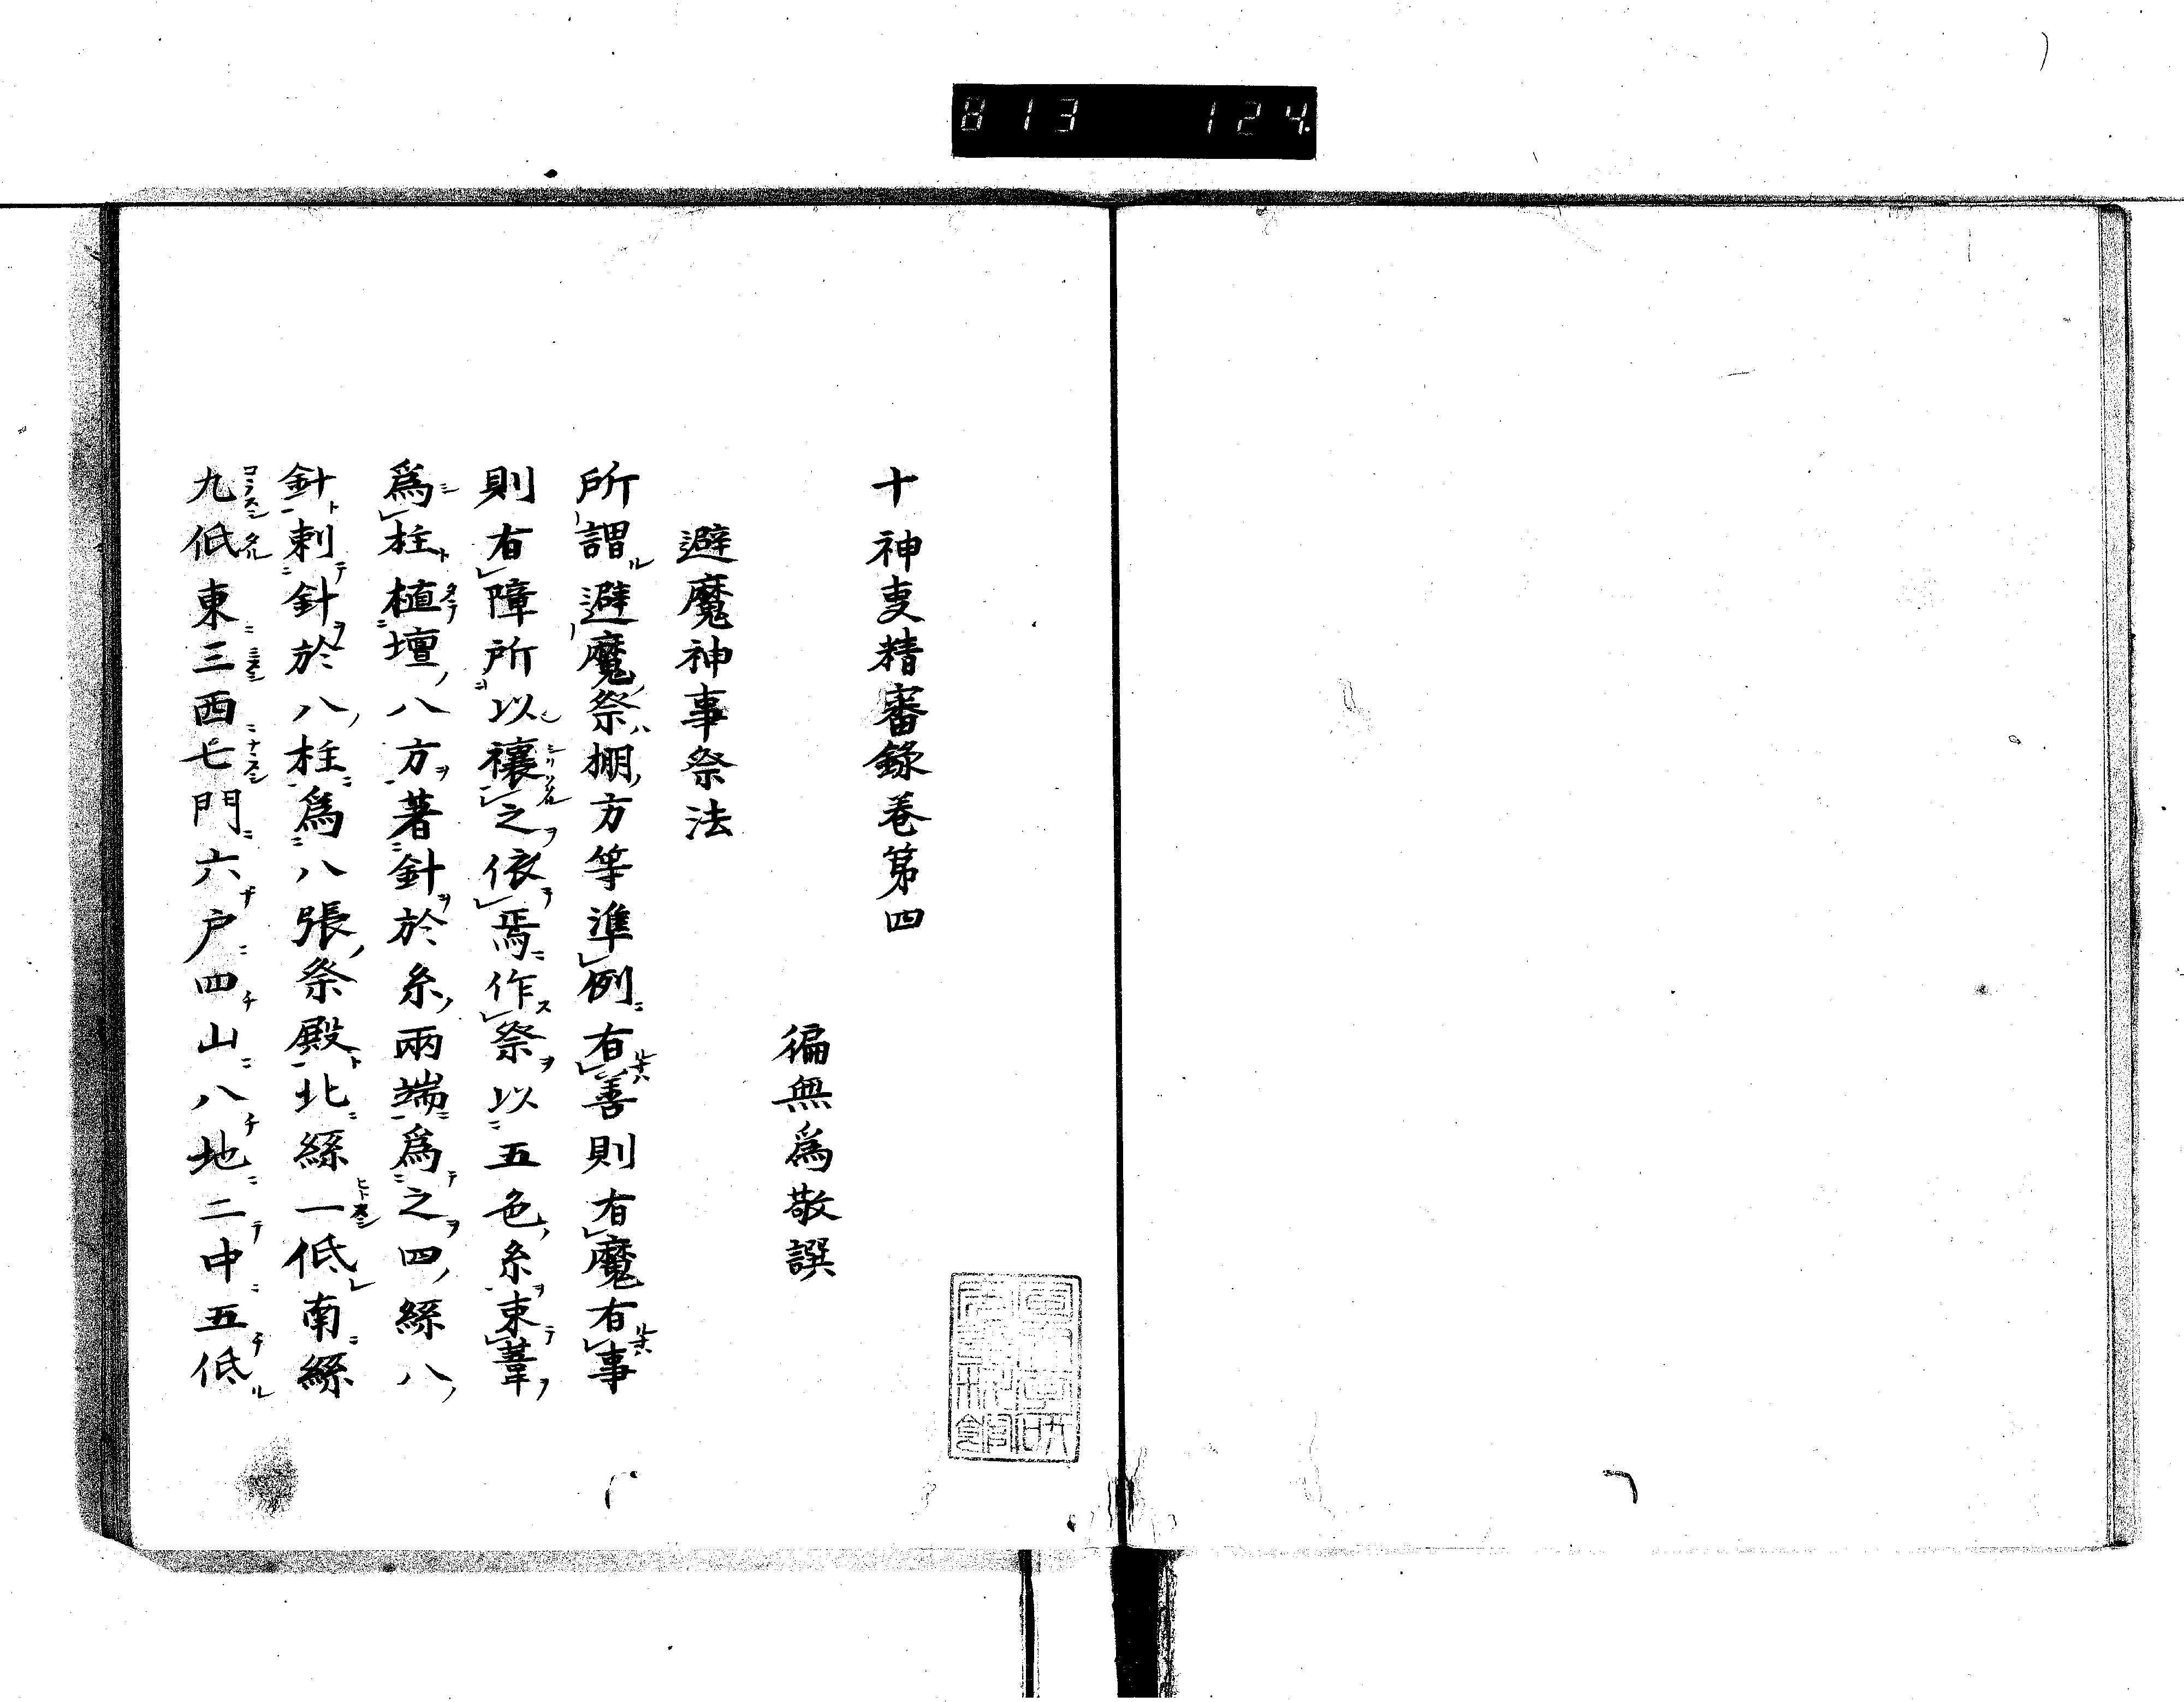 813 124.
十神叓精審錄卷第四
徧無爲敬譔
避魔神事祭法
所謂避魔祭棚方等準例有善則有魔有事
則有障所以禳之依焉作祭以五色糸束葦
爲柱植壇八方著針於糸兩端爲之四絲八
針刺針於八柱爲八張祭殿北絲一低南絲
九低東三西七門六戶四山八地二中五低